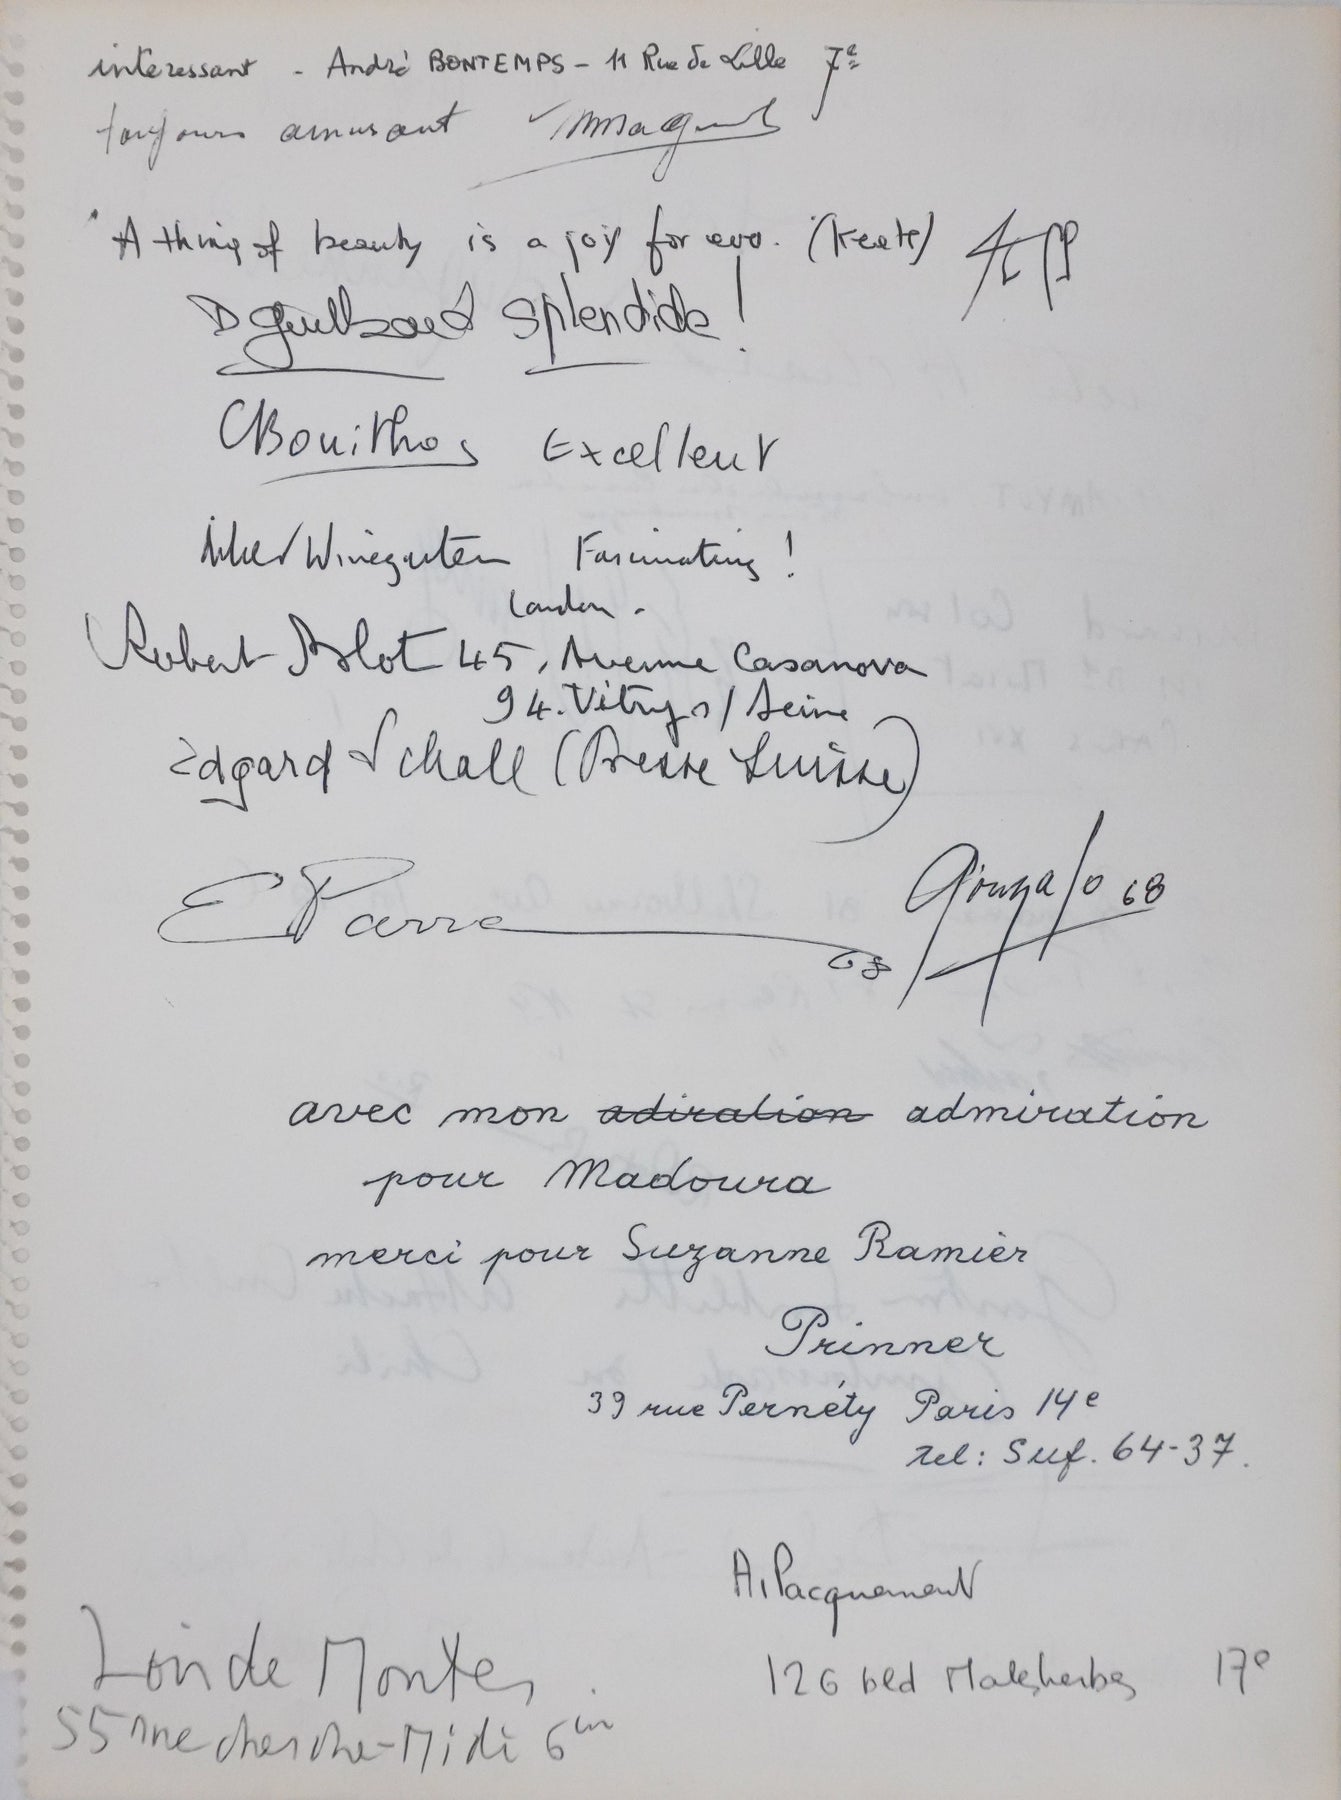 interessant - André BONTEMPS - 11 Rue de Lille 7e
toujours amusant
"A thing of beauty is a joy for ever. (Keats)
D Guilbaud Splendide!
CBouithos Excellent
Winegarten Fascinating!
London.
Robert Blot 45, Avenue Casanova
94. Vitry s/ Seine
Edgard Schall (Presse Suisse)
E Parra 68
Gonzalo 68
avec mon adiration admiration
pour Madoura
merci pour Suzanne Ramièr
Prinner
39 rue Pernéty Paris 14e
tel: Suf. 64-37.
A. Pacquement
126 bld Malesherbes 17e
Loïs de Montes.
55 rue cherche-Midi 6